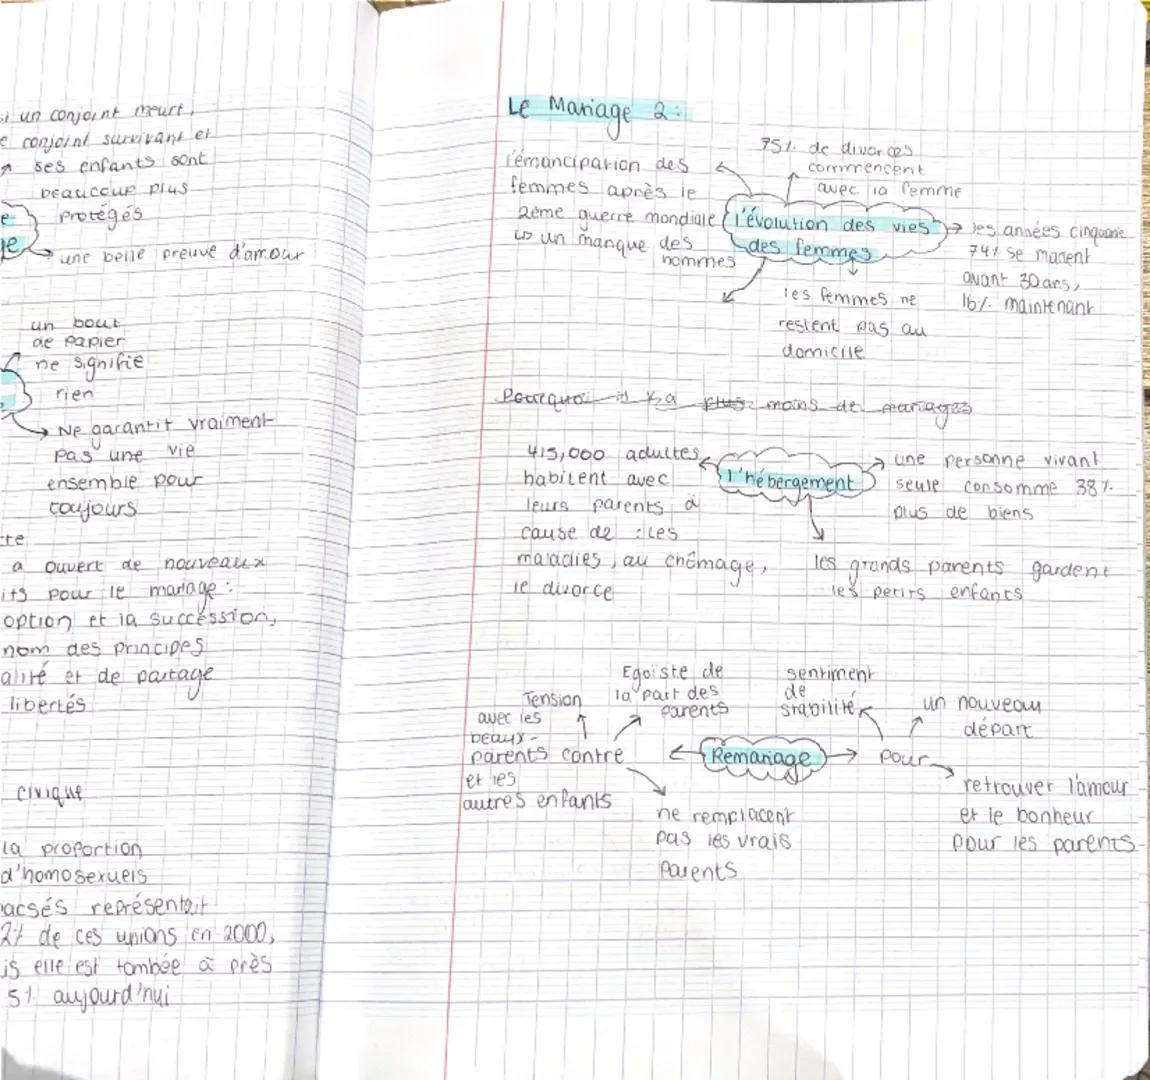 un conjoint meurt,
conjoint survivant et
ses enfants sont
beaucoup plus
protégés
une belle preuve d'amour
un bout
de papier
ne signifie
rien
Ne garantit vraiment
pas une vie
ensemble pour
toujours
a ouvert de nouveaux
pour le mariage :
option et la succession,
nom des principes
et de partage
libertés
civique
la proportion
d'homosexuels
représentait
2% de ces unions en 2000,
elle est tombée à près
5% aujourd'hui
Le Mariage 2:
l'émancipation des
femmes après le
2ème guerre mondiale
↳ un manque des
hommes
75% de divorces
commencent
avec la femme
l'évolution des vies
des femmes
les années cinquante
74% se marient
avant 30 ans,
16% maintenant
les femmes ne
restent pas au
domicile
Pourquoi il y a plus moins de mariages
415,000 adultes
habitent avec
leurs parents à
cause de : les
maladies, au chômage,
le divorce
l'hébergement
une personne vivant
seule consomme 38%
plus de biens
les grands parents gardent
les petits enfants
Tension
avec les
beaux-
parents contre
et les
autres enfants
Egoïste de
la part des
parents
ne remplacent
pas les vrais
parents
Remariage
pour
sentiment
de
stabilité
un nouveau
départ
retrouver l'amour
et le bonheur
pour les parents